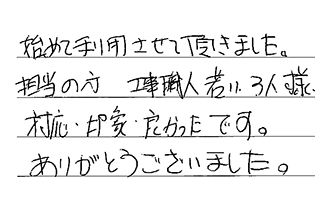 始めて利用させて頂きました。
担当の方 工事職人若い3人様
対応・印象・良かったです。
ありがとうございました。